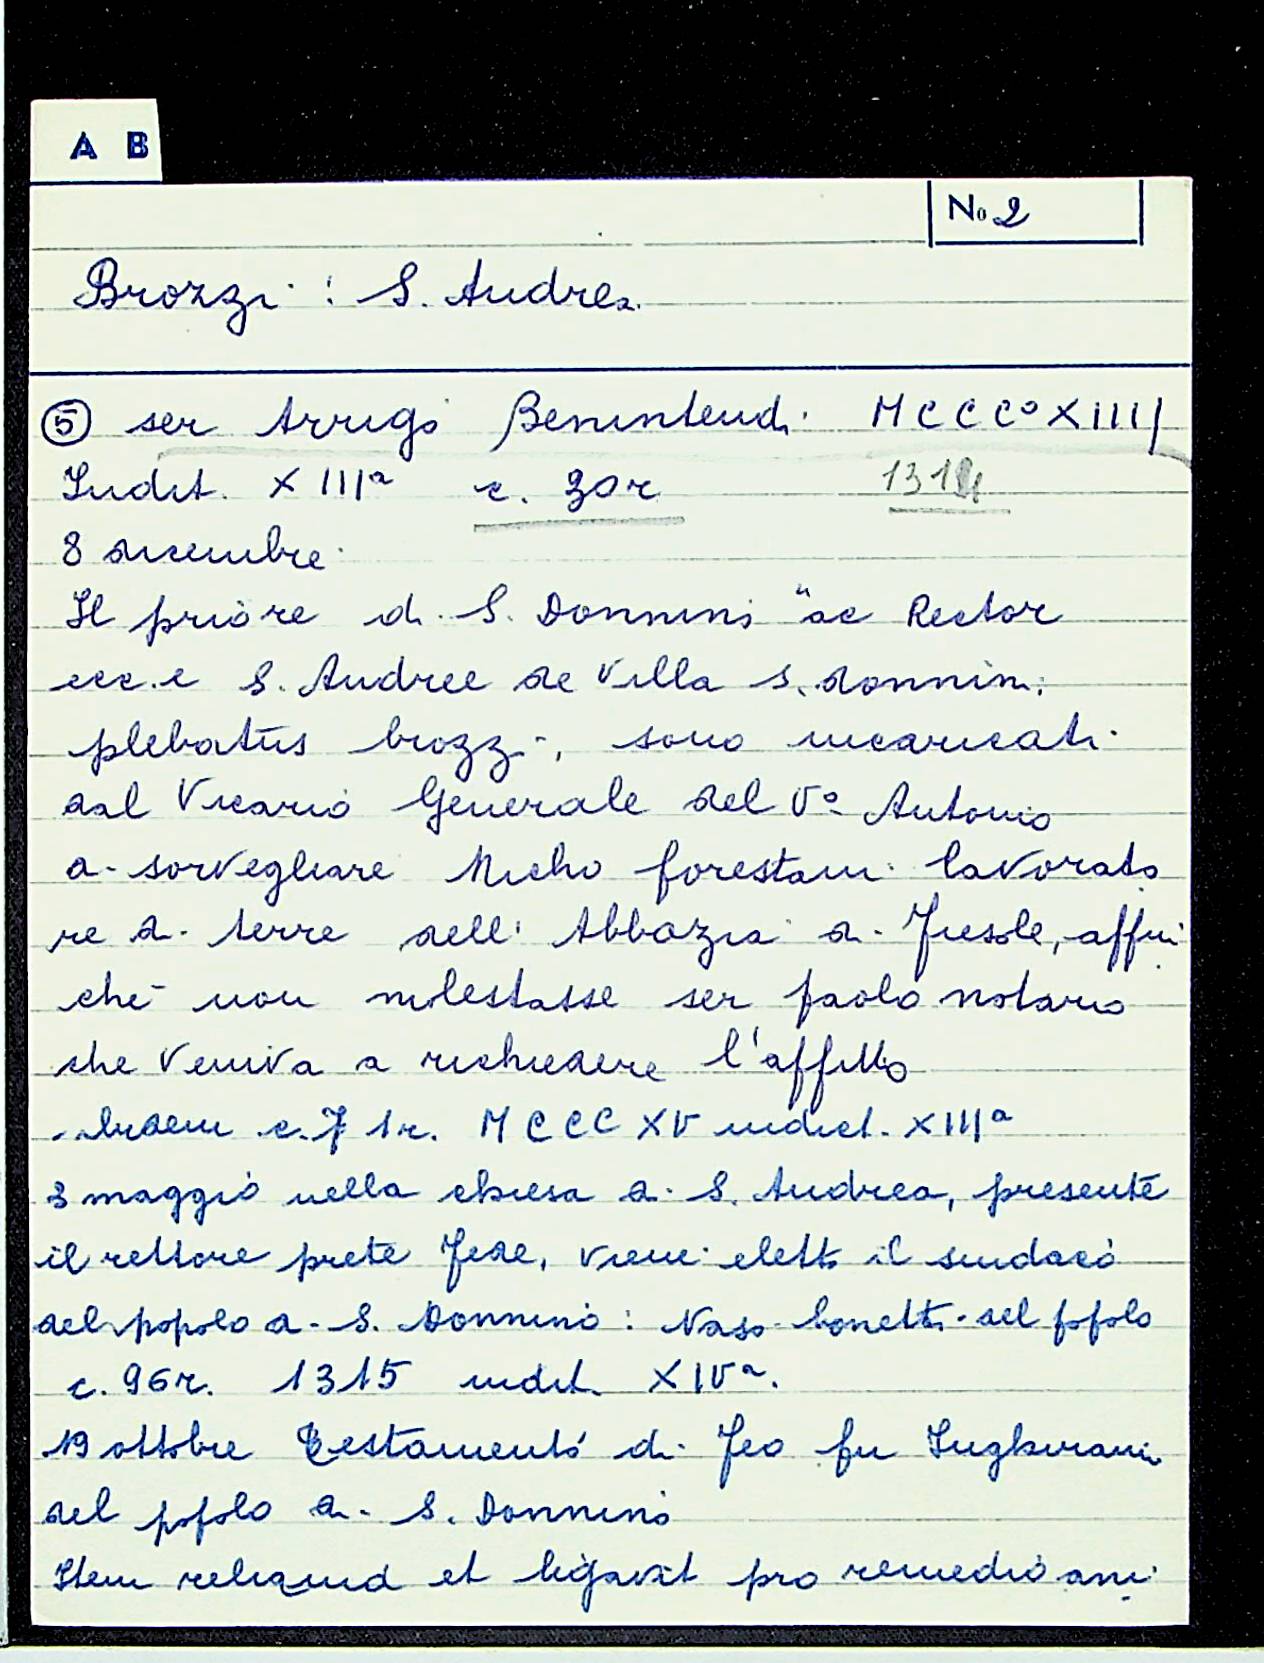 A B
No 2
Brozzi : S. Andrea
⑤ ser Arrigo Benintendi MCCC° XIIII
Indit. XIIIª c. 30r 1314
8 dicembre
Il priore di S. Donnino "ac Rector
ecc.e S. Andree de Villa S. donnini
plebatus brozzi, sono incaricati
dal Vicario Generale del V° Antonio
a sorvegliare Micho forestani lavorato
re di terre dell' Abbazia di Fiesole, affin
chè non molestasse ser paolo notario
che veniva a richiedere l'affitto
Ibidem c. 71r. MCCCXV indict. XIIIª
3 maggio nella chiesa di S. Andrea, presente
il rettore prete Fede, viene eletto il sindaco
del popolo di S. Donnino : Naso bonetti del popolo
c. 96r. 1315 indit. XIVª.
19 ottobre Testamento di Feo fu Inghirami
del popolo di S. Donnino
Item reliquid et legavit pro remedio ani